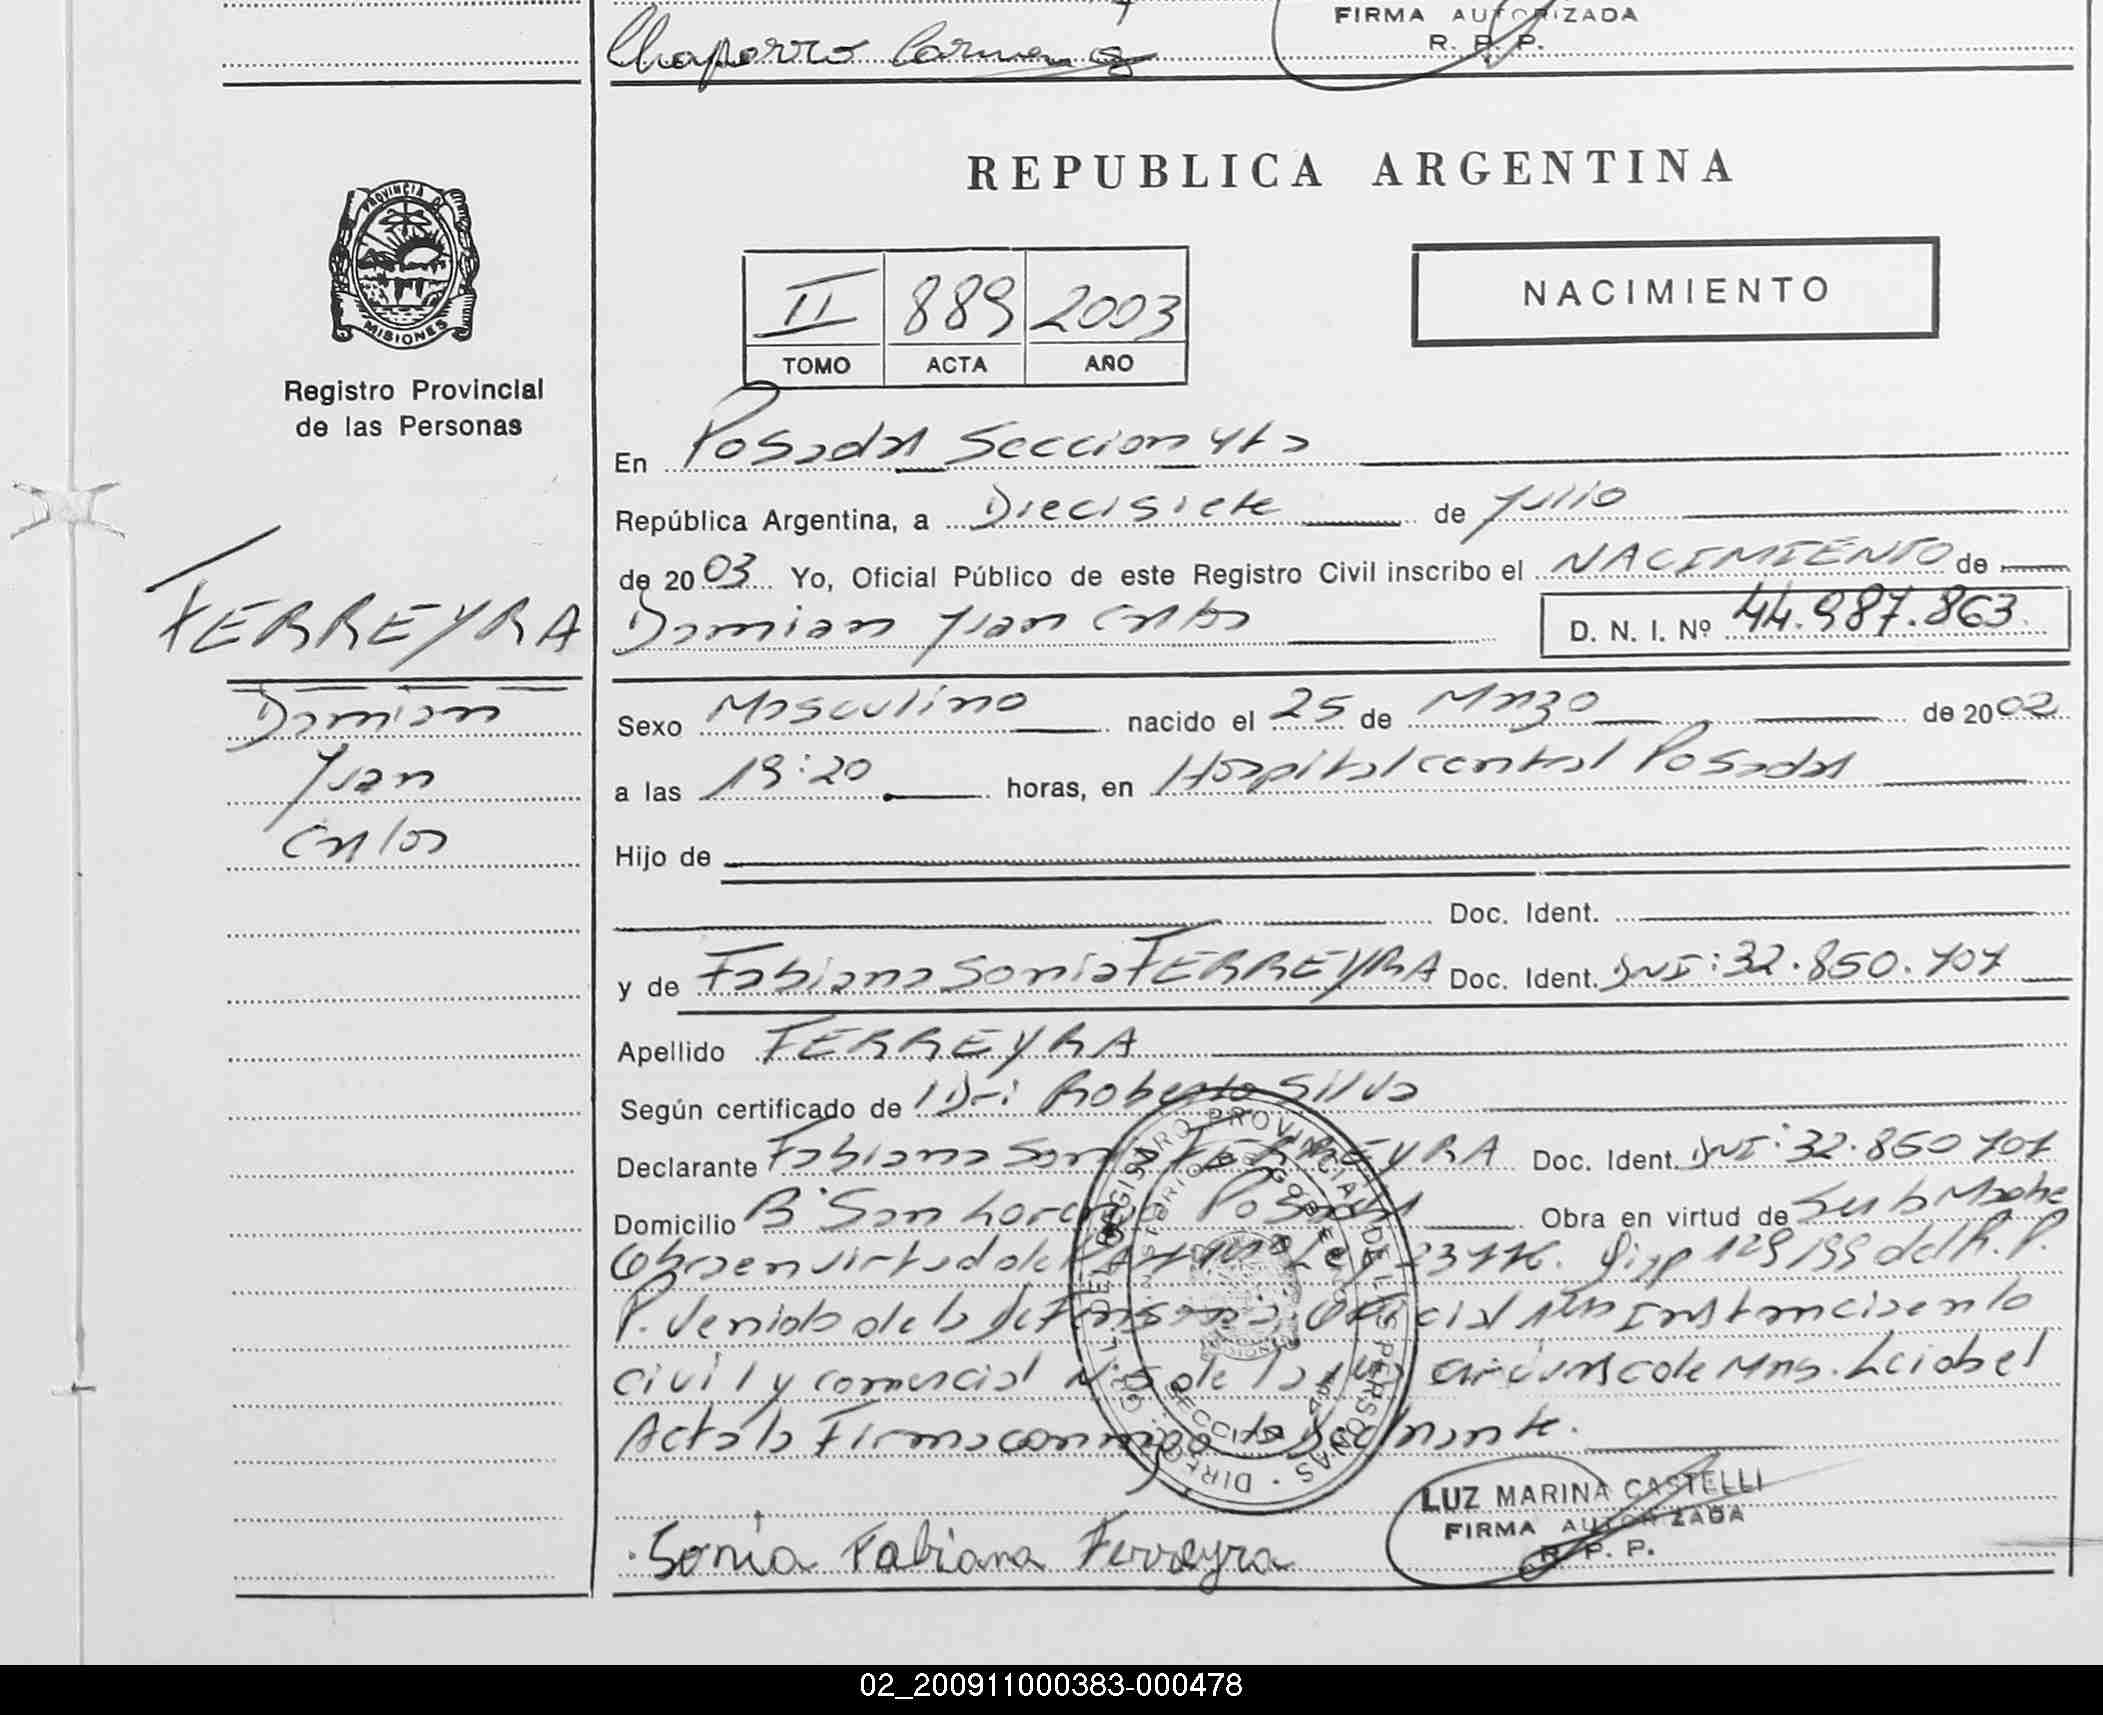 Chaparro Carmen
FIRMA AUTORIZADA
R. P. P.
PROVINCIA DE
MISIONES
Registro Provincial
de las Personas
REPUBLICA ARGENTINA
II 889 2003
TOMO ACTA AÑO
NACIMIENTO
En Posadas Seccion 4ta
República Argentina, a Diecisiete de Julio
de 2003 Yo, Oficial Público de este Registro Civil inscribo el NACIMIENTO de
FERREYRA
Damian Juan Carlos
D. N. I. Nº 44.987.863
Damian
Juan
Carlos
Sexo Masculino nacido el 25 de Marzo de 2002
a las 19:20 horas, en Hospital central Posadas
Hijo de
Doc. Ident.
y de Fabiana Sonia FERREYRA Doc. Ident. DNI: 32.850.707
Apellido FERREYRA
Según certificado de Dr: Roberto Silva
Declarante Fabiana Sonia FERREYRA Doc. Ident. DNI: 32.850.707
Domicilio B° San Lorenzo Posadas Obra en virtud de Su madre
Obra en virtud del Ley Disp 129/99 del R. P.
P. Venido de la Defensoria Oficial Instancia en lo
civil y comercial N°5 de la 1ra circunsc de Mns. Leida el
Acta la Firma conmigo la Declarante.
DIREC. GRAL. DEL REGISTRO PROVINCIAL DE LAS PERSONAS
MINISTERIO DE GOBIERNO
SECCION 4ta
LUZ MARINA CASTELLI
FIRMA AUTORIZADA
R. P. P.
Sonia Fabiana Ferreyra
02_200911000383-000478